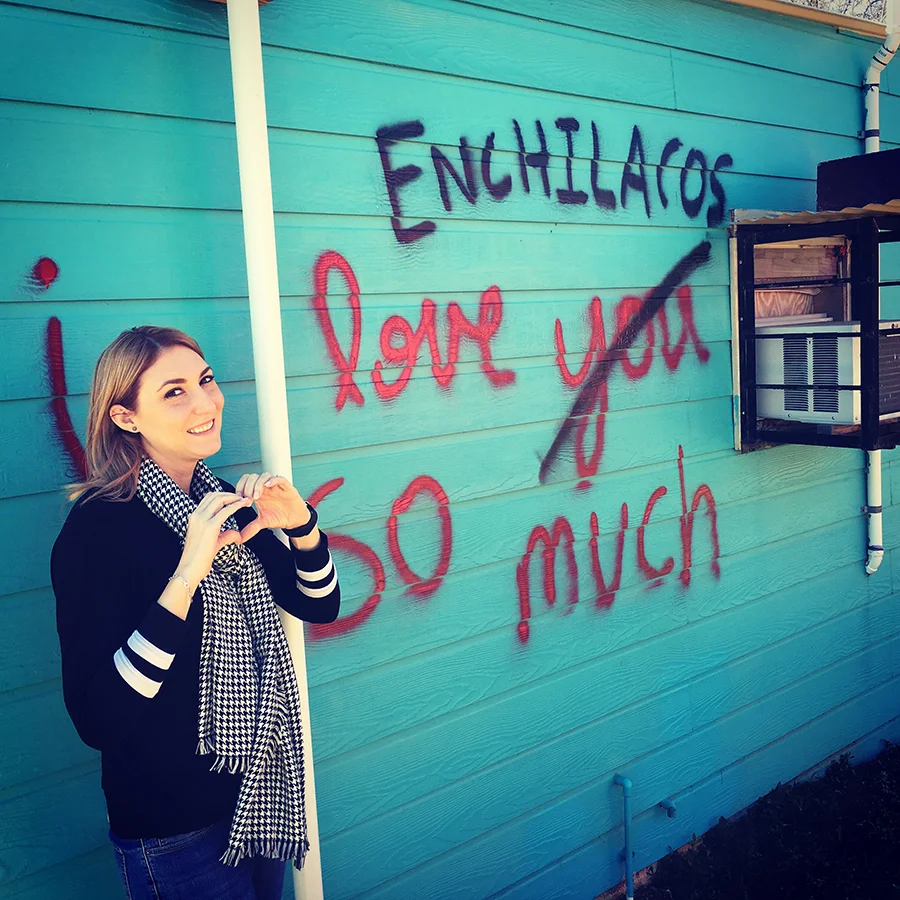 ENCHILACOS
i love you
so much